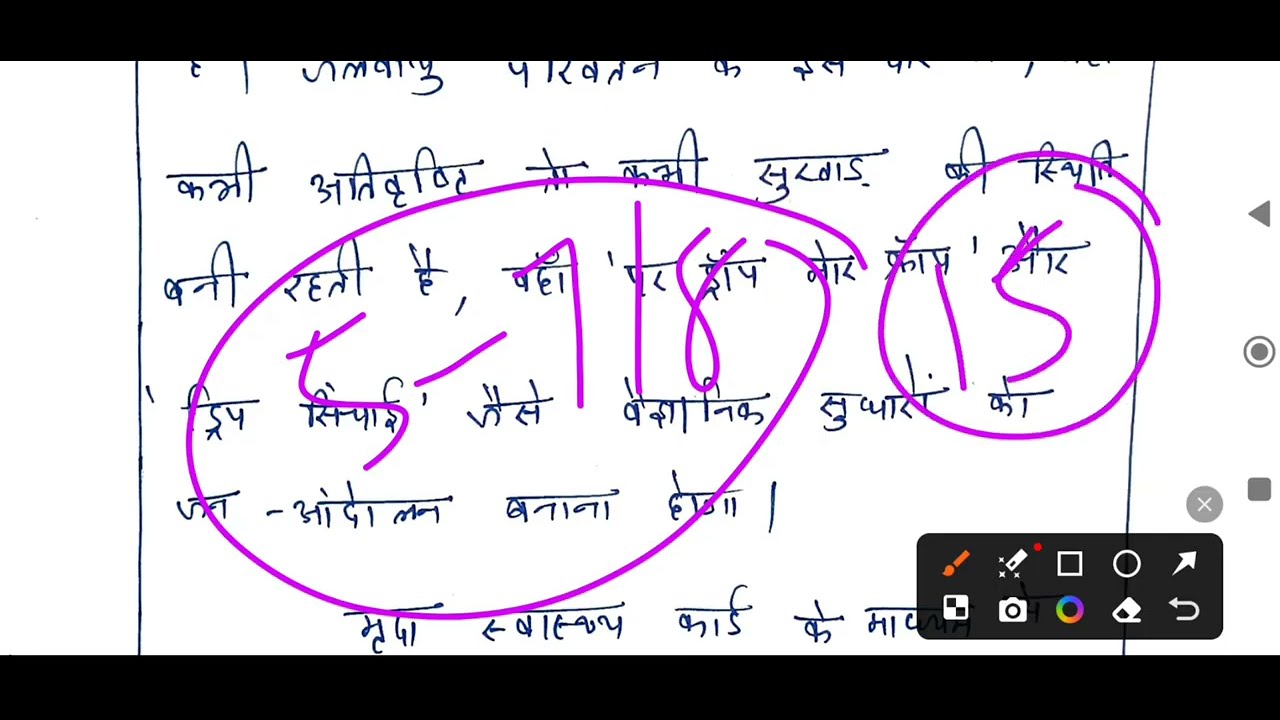 है। जलवायु परिवर्तन के इस
कभी अतिवृष्टि तो कभी सुखाड़ की स्थिति
बनी रहती है, वहाँ 'पर ड्रॉप मोर क्रॉप' और
'ड्रिप सिंचाई' जैसे वैज्ञानिक सुधारों को
जन-आंदोलन बनाना होगा।
मृदा स्वास्थ्य कार्ड के माध्यम से
5-7 | 8
15